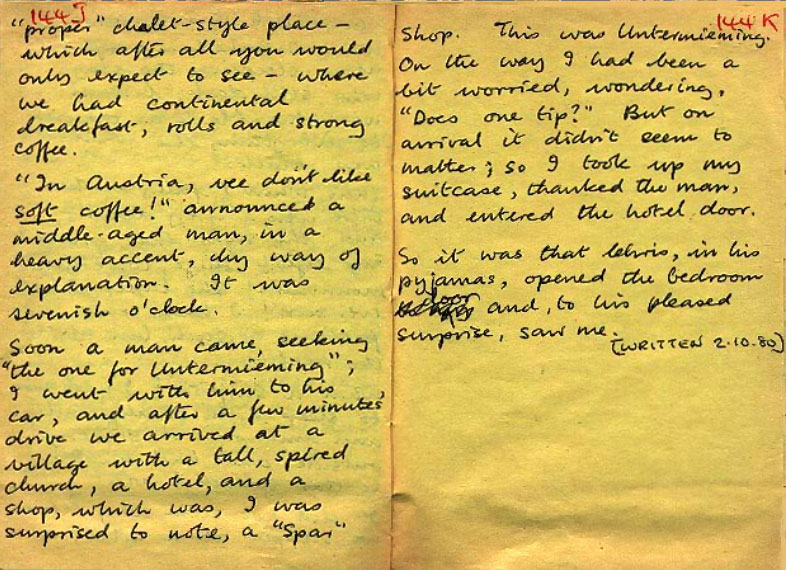 144J
"proper" chalet-style place –
which after all you would
only expect to see – where
we had continental
breakfast, rolls and strong
coffee.
"In Austria, vee don't like
soft coffee!" announced a
middle-aged man, in a
heavy accent, by way of
explanation. It was
sevenish o'clock.
Soon a man came, seeking
"the one for Untermieming";
I went with him to his
car, and after a few minutes'
drive we arrived at a
village with a tall, spired
church, a hotel, and a
shop, which was, I was
surprised to note, a "Spar"
144K
shop. This was Untermieming.
On the way I had been a
bit worried, wondering,
"Does one tip?" But on
arrival it didn't seem to
matter; so I took up my
suitcase, thanked the man,
and entered the hotel door.
So it was that Chris, in his
pyjamas, opened the bedroom
door and, to his pleased
surprise, saw me.
[WRITTEN 2.10.80]